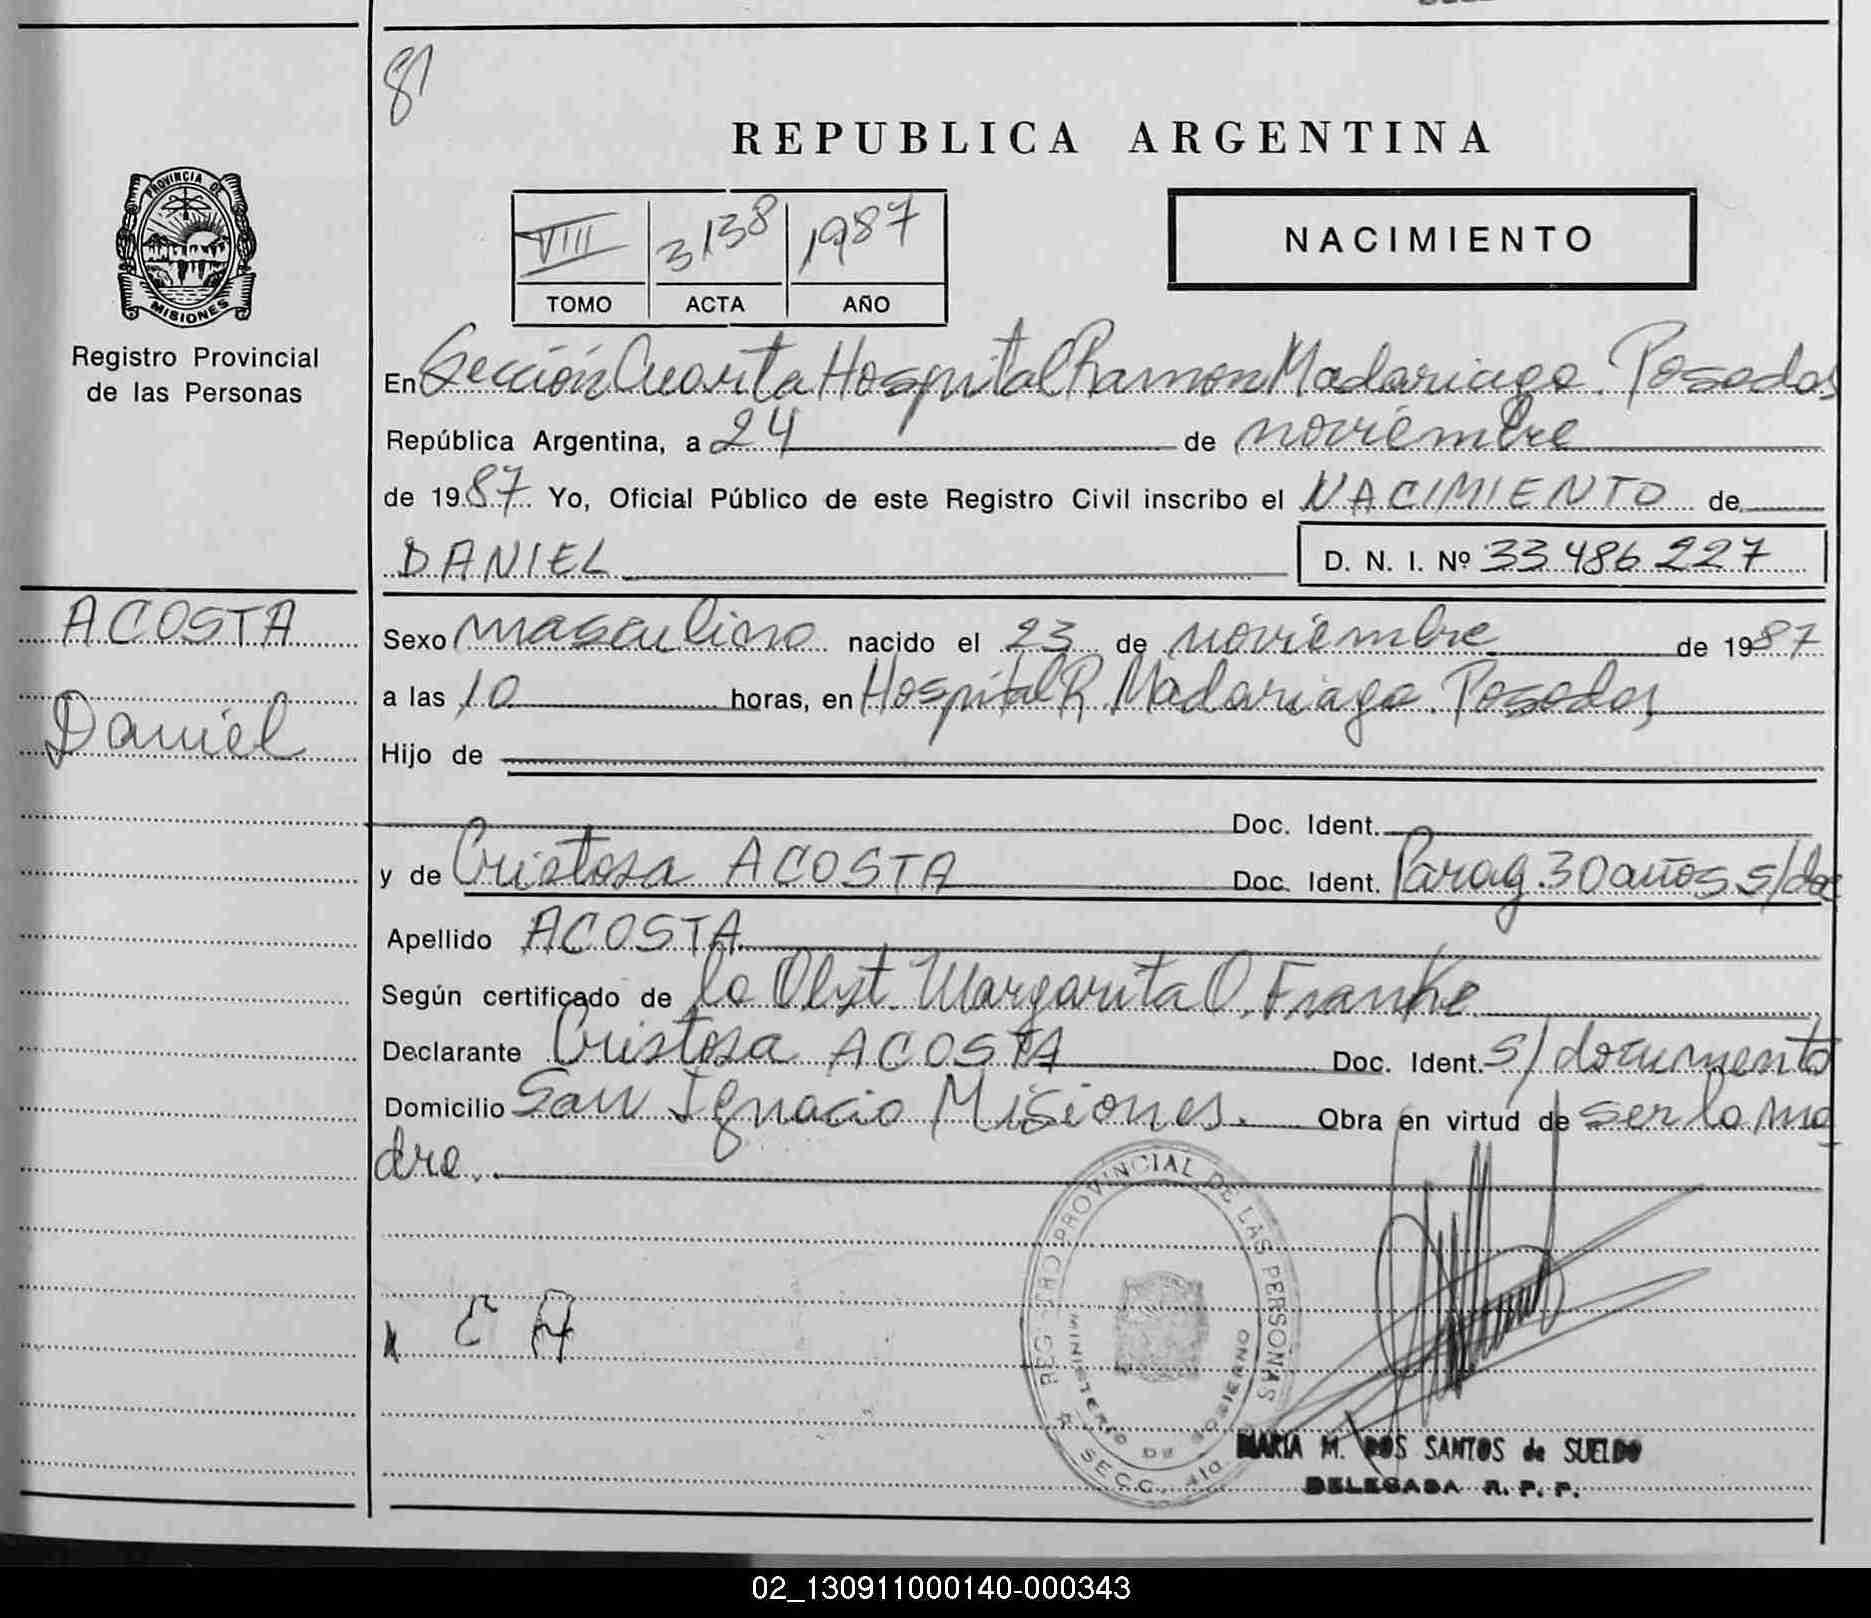 81
REPUBLICA ARGENTINA
PROVINCIA DE
MISIONES
Registro Provincial
de las Personas
VIII 3138 1987
TOMO ACTA AÑO
NACIMIENTO
En Sección Cuarta Hospital Ramon Madariaga. Posadas
República Argentina, a 24 de noviembre
de 1987 Yo, Oficial Público de este Registro Civil inscribo el NACIMIENTO de
DANIEL D. N. I. Nº 33 486 227
ACOSTA
Daniel
Sexo masculino nacido el 23 de noviembre de 1987
a las 10 horas, en Hospital R. Madariaga. Posadas
Hijo de
Doc. Ident.
y de Cristosa ACOSTA Doc. Ident. Parag. 30 años s/doc
Apellido ACOSTA
Según certificado de la Obst. Margarita O. Franke
Declarante Cristosa ACOSTA Doc. Ident. s/documento
Domicilio San Ignacio Misiones. Obra en virtud de ser la ma
dre.
REGISTRO PROVINCIAL DE LAS PERSONAS
MINISTERIO DE GOBIERNO
SECC. 4ta.
C A
MARIA M. DOS SANTOS de SUELDO
DELEGADA R. P. P.
02_130911000140-000343